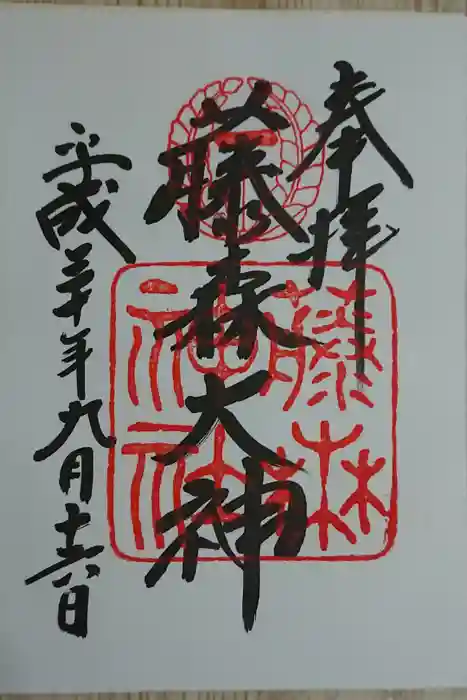 奉拝
藤森大神
平成三十年九月十六日
藤森
神社